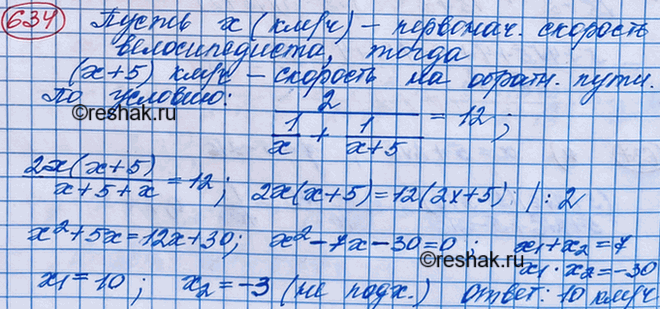 634 Пусть x (км/ч) – первонач. скорость
велосипедиста, тогда
(x+5) км/ч – скорость на обратн. пути.
По условию: 2/(1/x + 1/(x+5)) = 12;
©reshak.ru ©reshak.ru
2x(x+5)/(x+5+x) = 12; 2x(x+5)=12(2x+5) |:2
x²+5x=12x+30; x²-7x-30=0; x₁+x₂=7
x₁·x₂=-30
x₁=10; x₂=-3 (не подх.) Ответ: 10 км/ч
©reshak.ru ©reshak.ru